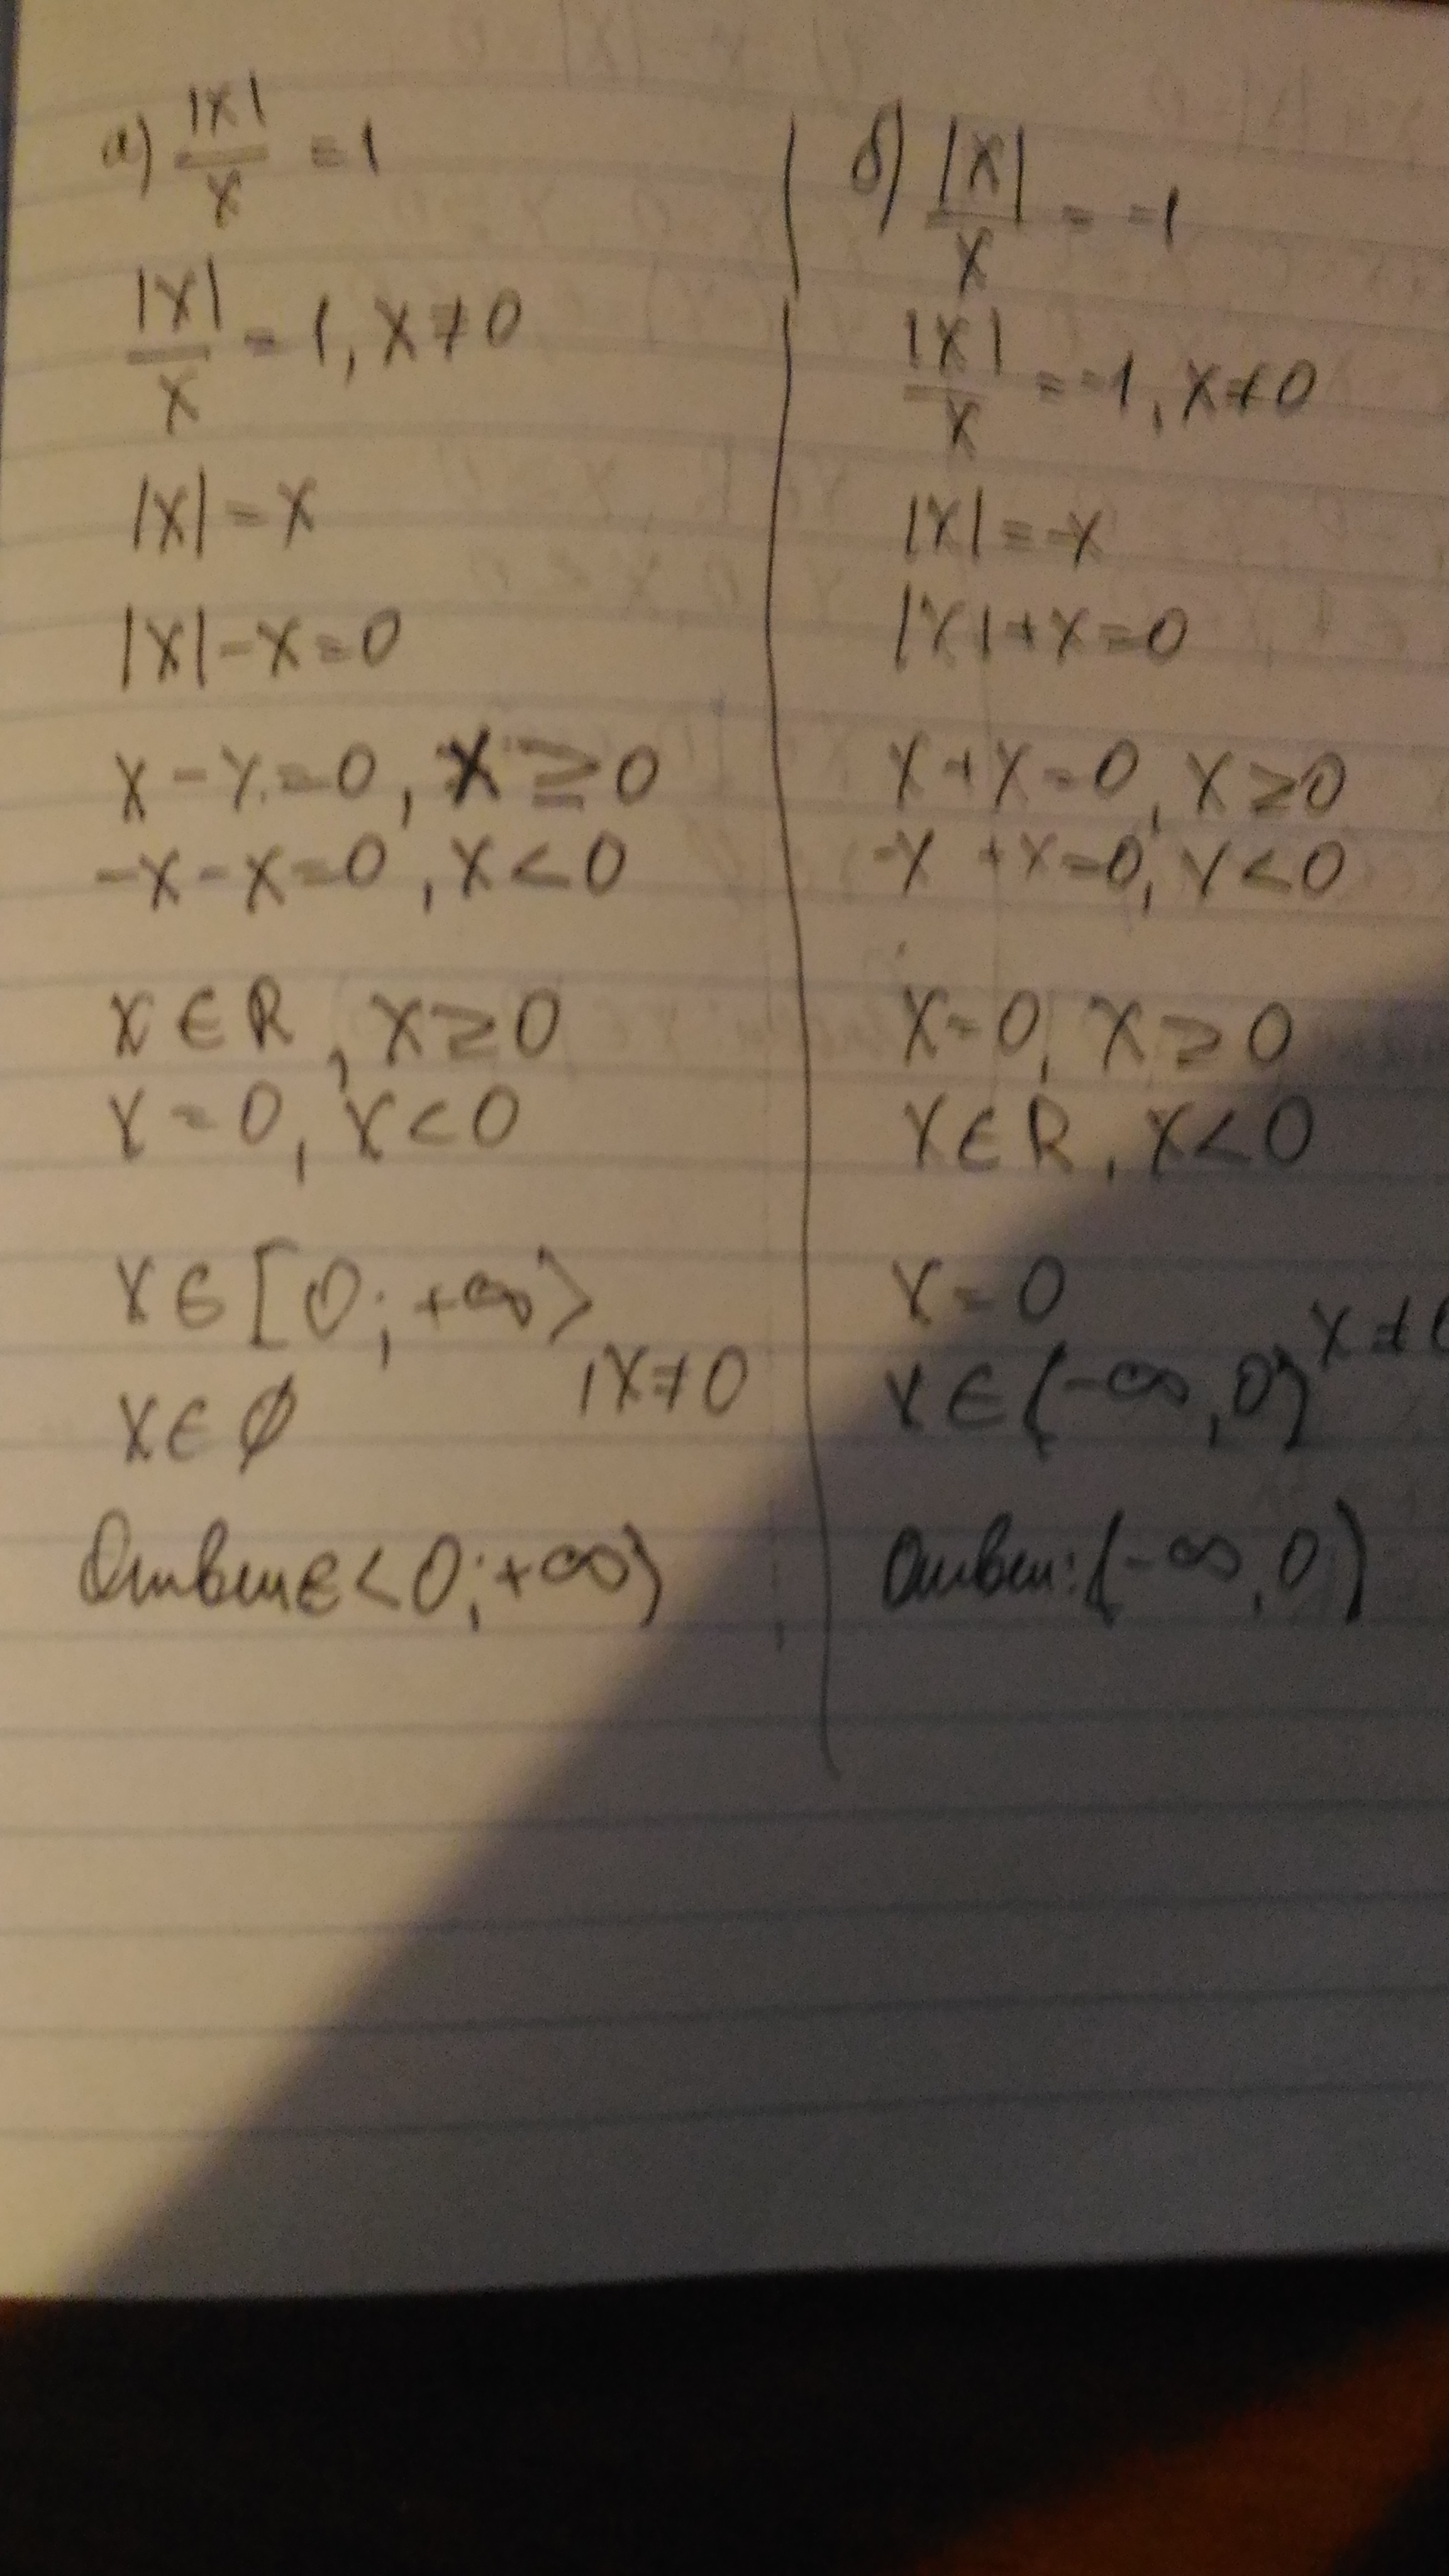 а) |x|/x = 1
|x|/x = 1, x ≠ 0
|x| = x
|x| - x = 0
x - x = 0, x ≥ 0
-x - x = 0, x < 0
x ∈ R, x ≥ 0
x = 0, x < 0
x ∈ [0; +∞>
, x ≠ 0
x ∈ ∅
Ответ ∈ <0; +∞)
б) |x|/x = -1
|x|/x = -1, x ≠ 0
|x| = -x
|x| + x = 0
x + x = 0, x ≥ 0
-x + x = 0, x < 0
x = 0, x ≥ 0
x ∈ R, x < 0
x = 0
x ≠ 0
x ∈ (-∞, 0)
Ответ: (-∞, 0)